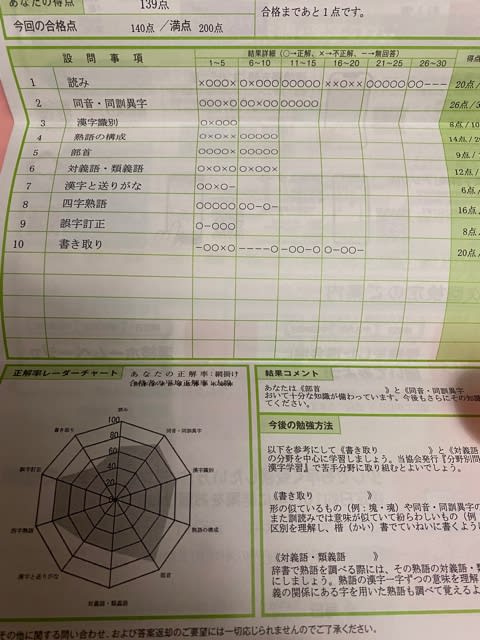 あなたの得点 139点
合格まであと1点です。
今回の合格点 140点 ／満点 200点
設問事項 結果詳細（○→正解、×→不正解、－→無回答） 得点
1～5 6～10 11～15 16～20 21～25 26～30
1 読み ×○○○○ ○×○○○ ○○○○○ ××○×○ ○○○○○ ○○－－－ 20点
2 同音・同訓異字 ○○○×○ ○○×○○ ○○○○○ 26点
3 漢字識別 ○×○○○ 8点
4 熟語の構成 ○×○×× ○○○○○ 14点
5 部首 ○○○○× ○○○○○ 9点
6 対義語・類義語 ○×○×○ ○×○○× 12点
7 漢字と送りがな ○○×○－ 6点
8 四字熟語 ○○○○○ ○○－○－ 16点
9 誤字訂正 ○－○○○ 8点
10 書き取り －○○×○ －－－－○ －○○－○ ○－○○－ 20点
正解率レーダーチャート あなたの正解率：網掛け
読み
同音・同訓異字
漢字識別
熟語の構成
部首
対義語・類義語
漢字と送りがな
四字熟語
誤字訂正
書き取り
100
80
60
40
20
0
結果コメント
あなたは《部首 》と《同音・同訓異字
おいて十分な知識が備わっています。今後もさらにその知識
てください。
今後の勉強方法
以下を参考にして《書き取り 》と《対義語
の分野を中心に学習しましょう。当協会発行『分野別問
漢字学習』で苦手分野に取り組むとよいでしょう。
《書き取り 》
形の似ているもの（例：塊・魂）や同音・同訓異字の
また訓読みでは意味が似ていて紛らわしいもの（例
区別を理解し、楷（かい）書でていねいに書くように
《対義語・類義語 》
辞書で熟語を調べる際には、その熟語の対義語
にしましょう。熟語の漢字一字ずつの意味を理解
義の関係にある字を用いた熟語も調べて覚えるよ
その他に関する問い合わせ、および答案返却のご要望には一切応じられませんのでご了承ください。